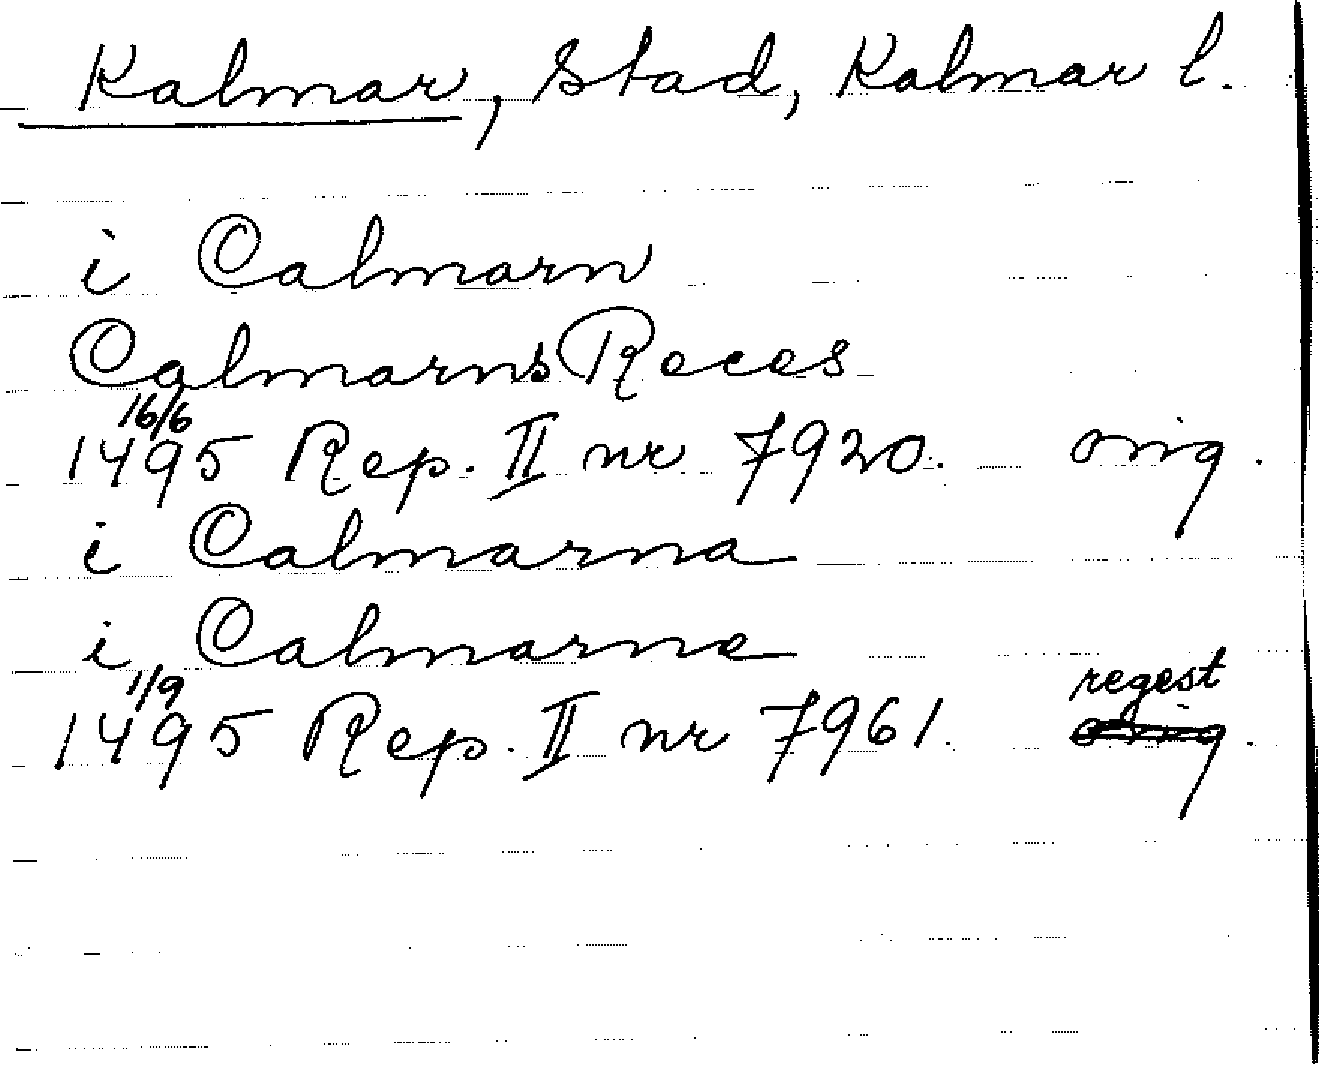 Kalmar, Stad, Kalmar l.
i Calmarn
Calmarns Reces
16/6
1495 Rep. II nr 7920. orig.
i Calmarna
i Calmarne
1/9 regest
1495 Rep. II nr 7961. orig.